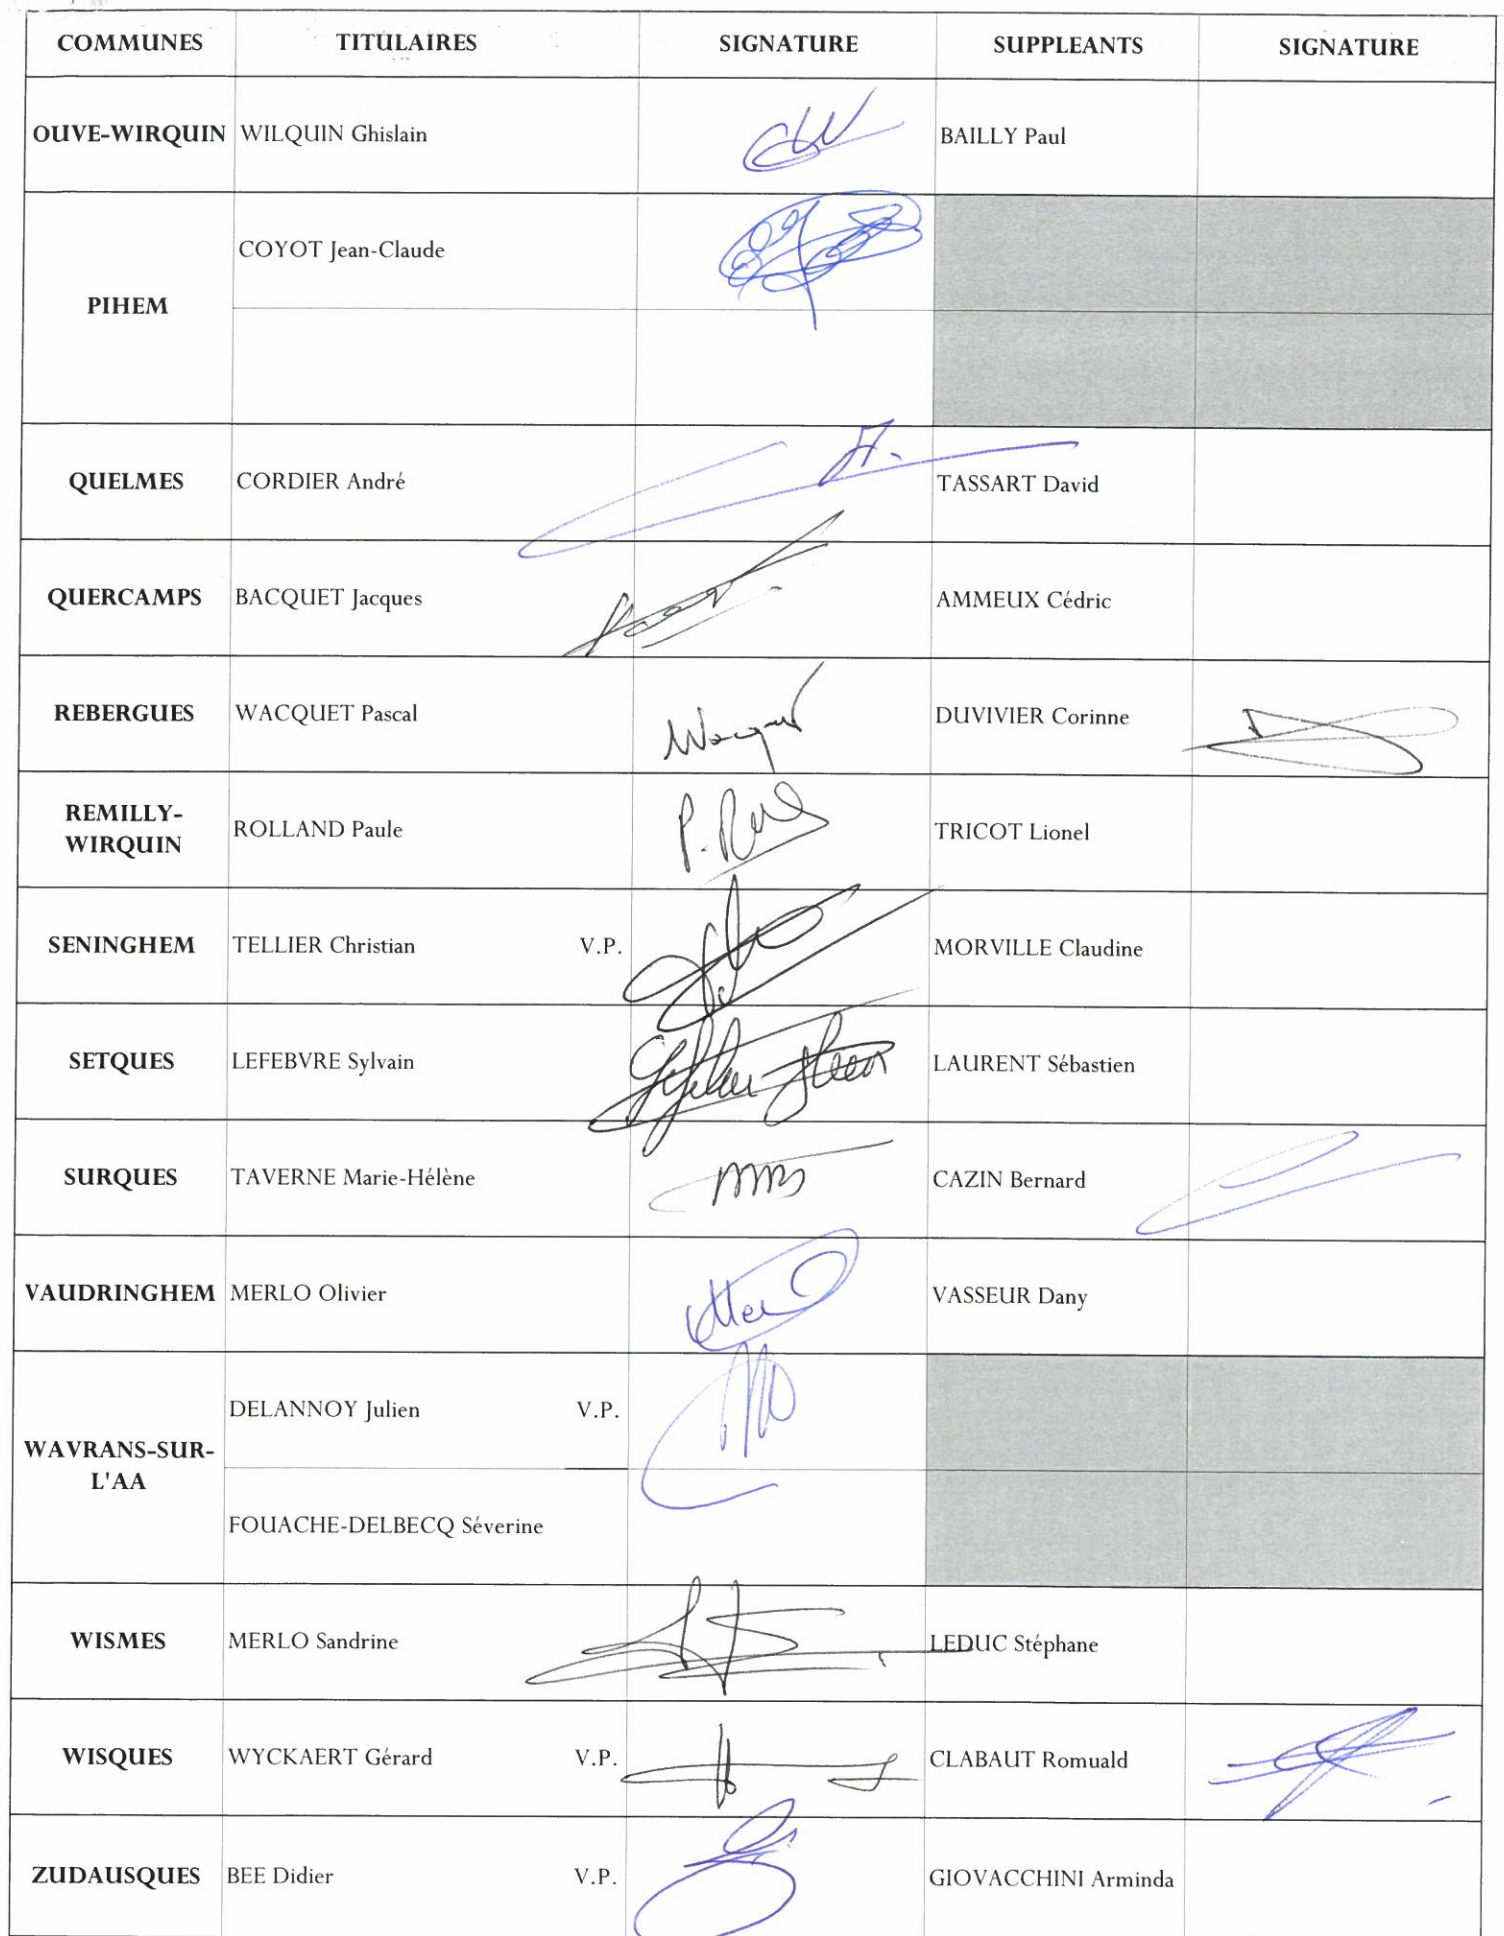 COMMUNES TITULAIRES SIGNATURE SUPPLEANTS SIGNATURE
OUVE-WIRQUIN WILQUIN Ghislain BAILLY Paul
COYOT Jean-Claude
PIHEM
QUELMES CORDIER André TASSART David
QUERCAMPS BACQUET Jacques AMMEUX Cédric
REBERGUES WACQUET Pascal Wacquet DUVIVIER Corinne
REMILLY-
WIRQUIN ROLLAND Paule TRICOT Lionel
SENINGHEM TELLIER Christian V.P. MORVILLE Claudine
SETQUES LEFEBVRE Sylvain LAURENT Sébastien
SURQUES TAVERNE Marie-Hélène CAZIN Bernard
VAUDRINGHEM MERLO Olivier VASSEUR Dany
DELANNOY Julien V.P.
WAVRANS-SUR-
L'AA
FOUACHE-DELBECQ Séverine
WISMES MERLO Sandrine LEDUC Stéphane
WISQUES WYCKAERT Gérard V.P. CLABAUT Romuald
ZUDAUSQUES BEE Didier V.P. GIOVACCHINI Arminda